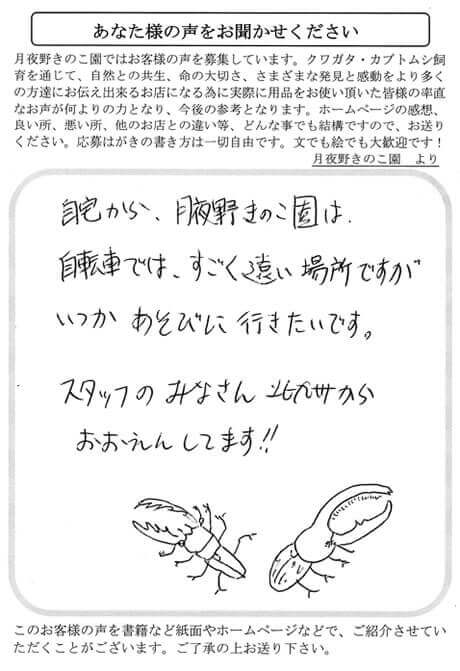 あなた様の声をお聞かせください
月夜野きのこ園ではお客様の声を募集しています。クワガタ・カブトムシ飼
育を通じて、自然との共生、命の大切さ、さまざまな発見と感動をより多く
の方達にお伝え出来るお店になる為に実際に用品をお使い頂いた皆様の率直
なお声が何よりの力となり、今後の参考となります。ホームページの感想、
良い所、悪い所、他のお店との違い等、どんな事でも結構ですので、お送り
ください。応募はがきの書き方は一切自由です。文でも絵でも大歓迎です！
月夜野きのこ園　より
自宅から、月夜野きのこ園は、
自転車では、すごく遠い場所ですが
いつか あそびに 行きたいです。
スタッフの みなさん 北九州から
おおえんしてます!!
このお客様の声を書籍など紙面やホームページなどで、ご紹介させてい
ただくことがございます。ご了承の上お送り下さい。